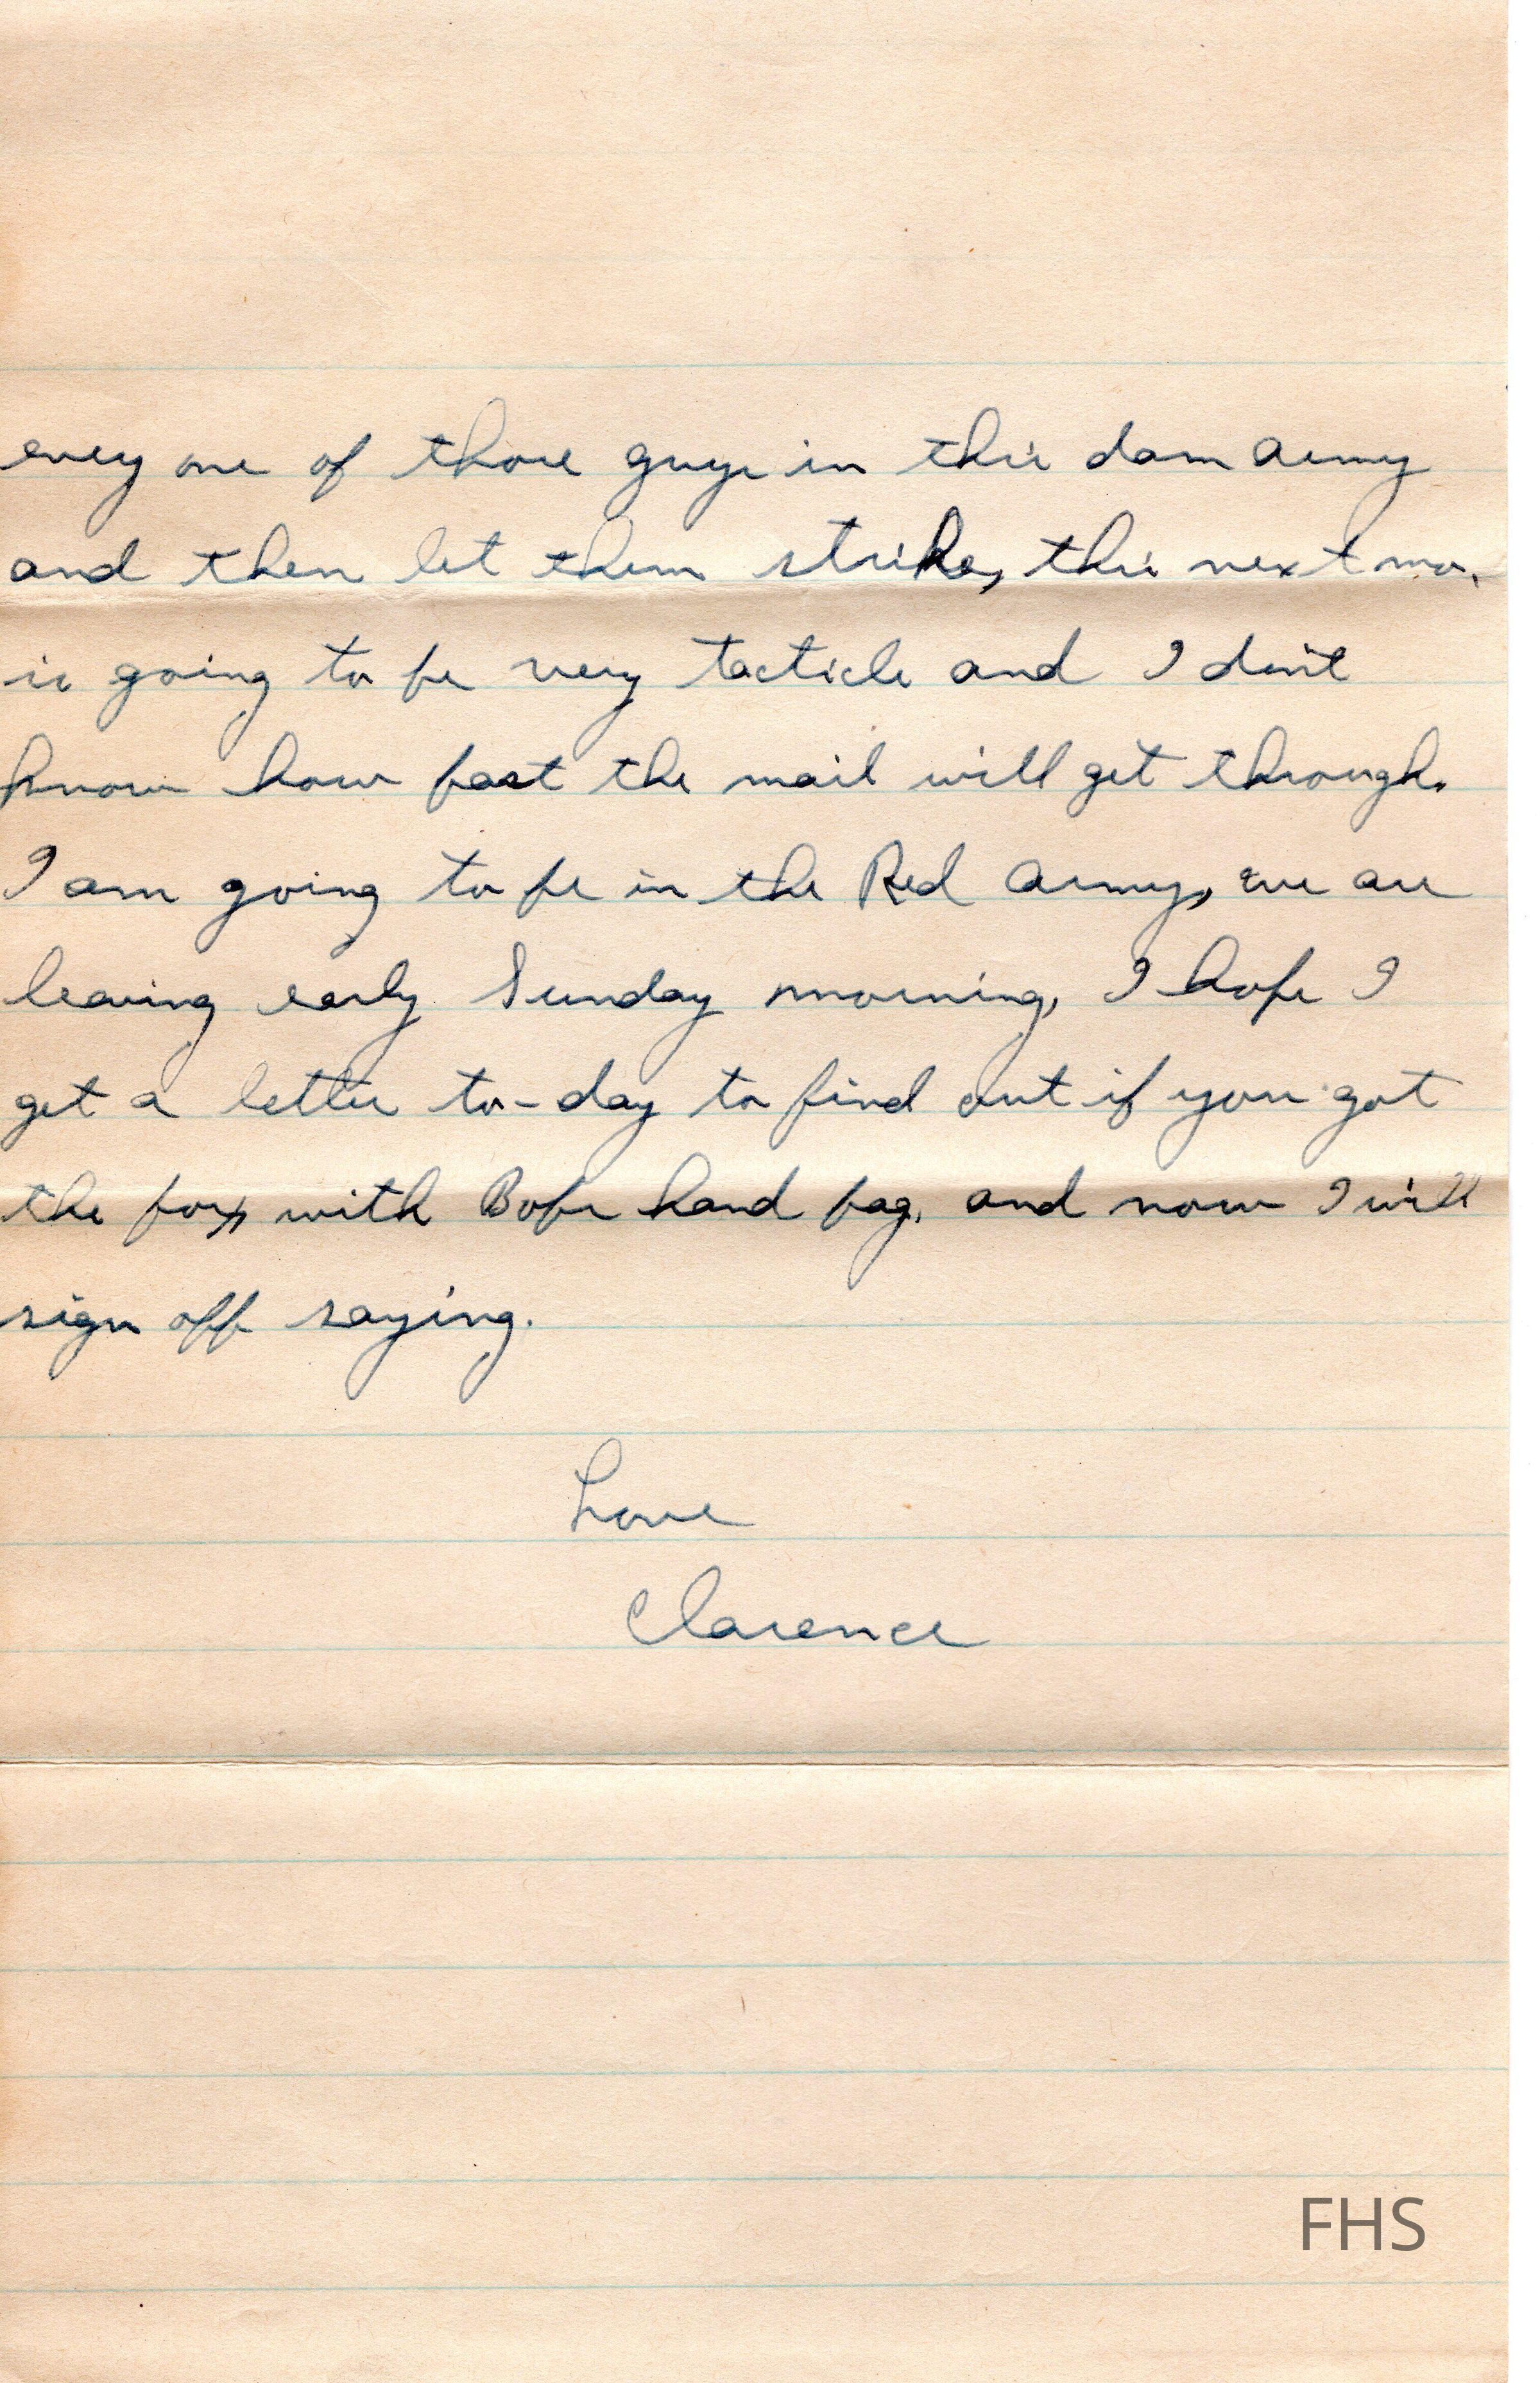 every one of those guys in this dam army
and then let them strike, this next mo.
is going to be very tacticle and I don't
know how fast the mail will get through.
I am going to be in the Red army, we are
leaving early Sunday morning, I hope I
get a letter to-day to find out if you got
the box with Bobs hand bag, and now I will
sign off saying.
Love
Clarence
FHS